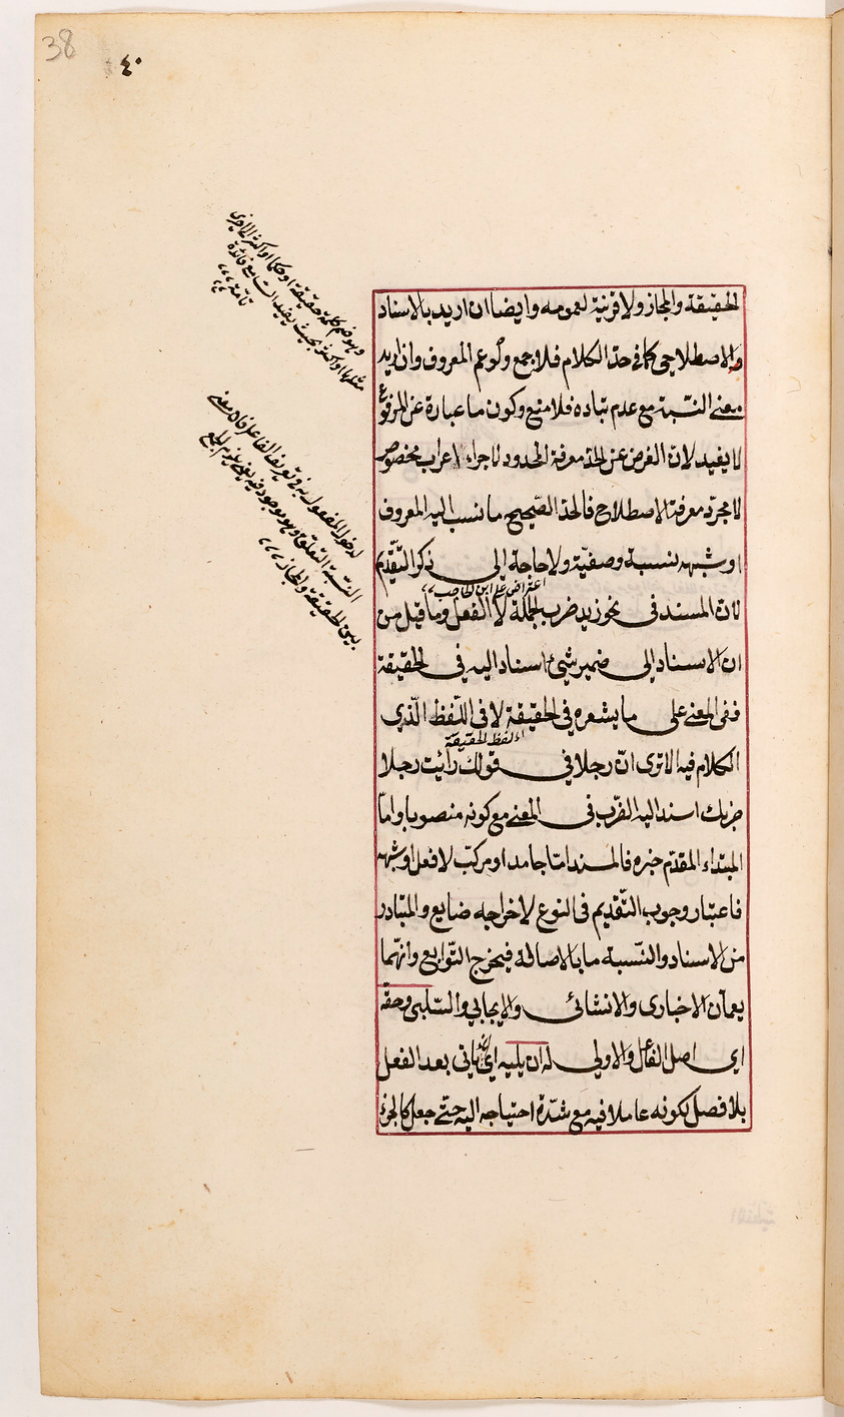 38
٤٠
الحقيقة والمجاز ولا قرنية لعمومه وايضا ان اريد بالاسناد
الاصطلاحى كما فى حد الكلام فلا جمع ولو عم المعروف وان اريد
معنى النسبة مع عدم تباده فلا منع وكون ما عبارة عن المرفوع
لا يفيد لان الغرض عن الحد معرفة المحدود لاجراء اعراب مخصوص
لا مجرد معرفة الاصطلاح فالحد الصحيح ما نسب اليه المعروف
او شبهه نسبة وصفية ولا حاجة الى ذكر التقديم
اعتراض على ابن الحاجب
لان المسند فى نحو زيد ضرب الجملة لا الفعل وما قيل من
ان الاسناد الى ضمير شئ اسناد اليه فى الحقيقة
ففى المعنى على ما يشعره فى الحقيقة لا فى اللفظ الذى
لفظ الحقيقة
الكلام فيه الا ترى ان رجلا فى قولك رأيت رجلا
ضربك اسند اليه الضرب فى المعنى مع كونه منصوبا واما
المبتداء المقدم خبره فالمسند اما جامد او مركب لا فعل او شبهه
فاعتبار وجوب التقديم فى النوع لاخراجه ضايع والمتبادر
من الاسناد والنسبة ما بالاصالة فيخرج التوابع وانهما
يعمان الاخبارى والانشائى والايجابى والسلبى وحقه
اى اصل الفاعل والاولى له ان يليه اى يأتى بعد الفعل
بلا فصل لكونه عاملا فيه مع شدة احتياجه اليه حتى جعل كالجزء
وهو ضم كلمة حقيقة او حكما او اكثر الى اخرى
مثلها او اكثر بحيث يفيد السامع فائدة
تامة
لدخول المفعول به فى تعريف الفاعل فان معنى
النسبة التعلق وهو موجود فيه يلزم الجمع
بين الحقيقة والمجاز